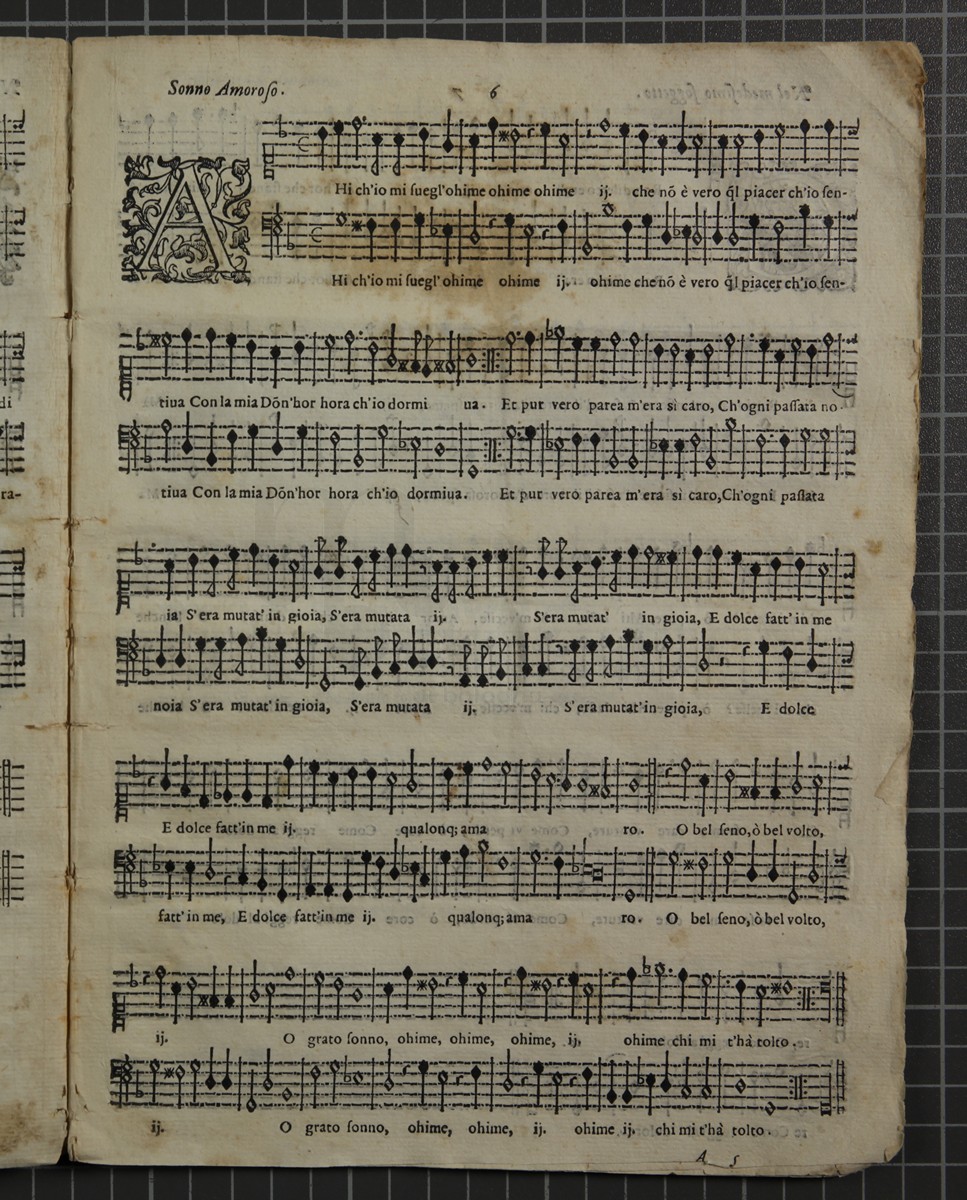 Sonno Amoroſo. 6
A
Hi ch'io mi ſuegl'ohime ohime ohime ij. che nō è vero q̄l piacer ch'io ſen-
Hi ch'io mi ſuegl' ohime ohime ij. ohime che nō è vero q̄l piacer ch'io ſen-
di
tiua Con la mia Dōn'hor hora ch'io dormi ua. Et pur vero parea m'era sì caro, Ch'ogni paſſata no-
ra-
tiua Con la mia Dōn'hor hora ch'io dormiua. Et pur vero parea m'era sì caro,Ch'ogni paſſata
ia S'era mutat' in gioia, S'era mutata ij. S'era mutat' in gioia, E dolce fatt' in me
noia S'era mutat' in gioia, S'era mutata ij. S'era mutat'in gioia, E dolce
E dolce fatt'in me ij. qualonq; ama ro. O bel ſeno,ò bel volto,
fatt' in me, E dolce fatt'in me ij. qualonq;ama ro. O bel ſeno, ò bel volto,
ij. O grato ſonno, ohime, ohime, ohime, ij, ohime chi mi t'hà tolto.
ij. O grato ſonno, ohime, ohime, ij. ohime ij. chi mi t'hà tolto.
A 5